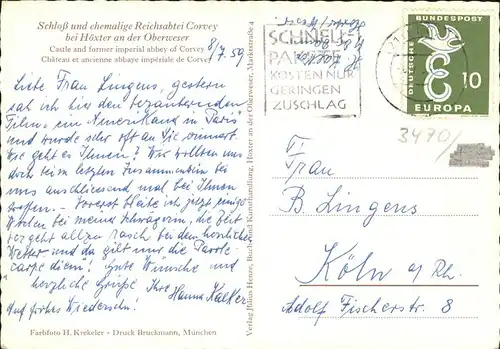 Schloß und ehemalige Reichsabtei Corvey
bei Höxter an der Oberweser
Castle and former imperial abbey of Corvey
Château et ancienne abbaye impériale de Corvey
8/7. 59.
Liebe Frau Lingens, gestern
sah ich hier den bezaubernden
Film, ein Amerikaner in Paris
und wurde sehr oft an Sie erinnert
Wie geht es Ihnen? Wir wollten uns
doch beim letzten Zusammensein bei
uns anschliessend mal bei Ihnen
treffen. - Vorerst bleibe ich jetzt einige
Wochen bei meiner Schwägerin, die Zeit
vergeht allzu rasch bei dem herrlichen
Wetter und da gilt uns die Parole -
carpe diem! Gute Wünsche und
herzliche Grüße Ihre Hanna
Auf frohes Wiedersehn!
Farbfoto H. Krekeler - Druck Bruckmann, München
Verlag Julius Henze, Buch- und Kunsthandlung, Höxter an der Oberweser, Marktstraße 4
SCHNELL-
PAKETE
KOSTEN NUR
GERINGEN
ZUSCHLAG
DEUTSCHE
BUNDESPOST
10
EUROPA
3470/
Frau
B. Lingens
Köln a/Rh.
Adolf Fischerstr. 8